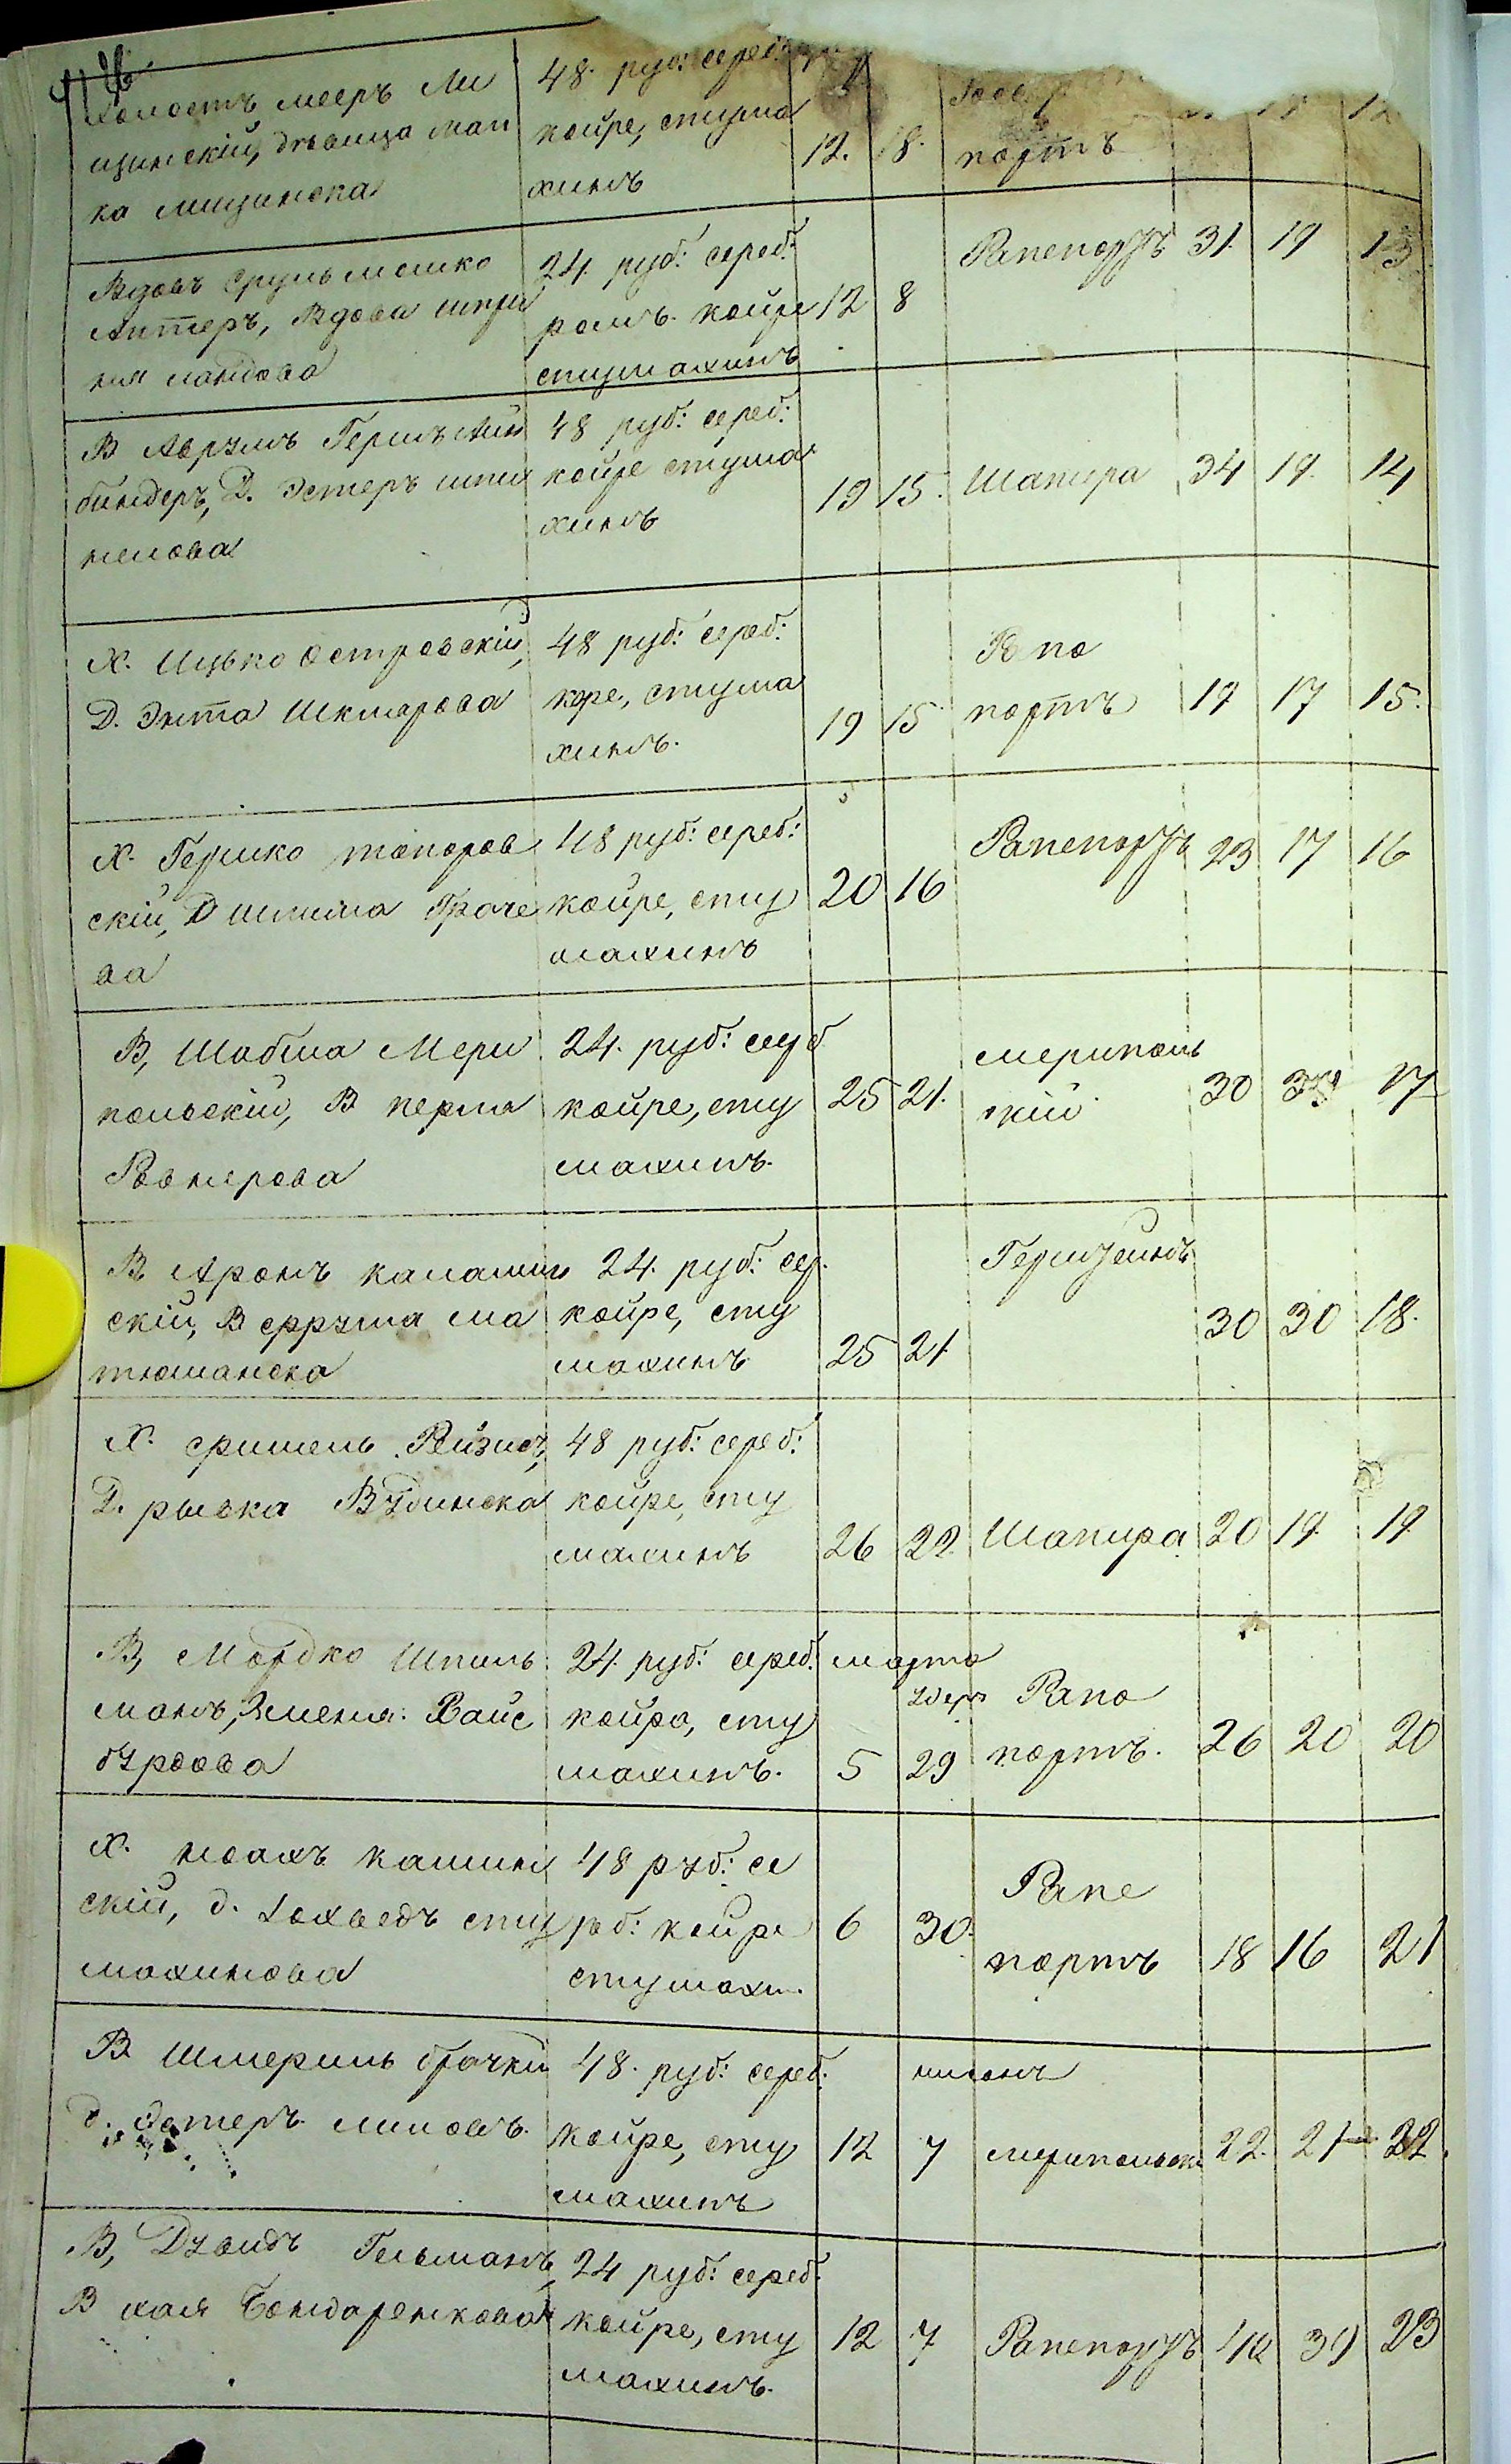 Холостъ мееръ Ли
щинскій, дѣвица мал
ка лищинска
48. руб: сереб:
койре, стума
хинъ
12. 8. портъ 12
Вдовъ Сруль мошко
Аптеръ, Вдова шпри
нця ландова
24. руб: сереб:
ромъ. койре
стумахинъ
12 8 Рапепортъ 31. 19 13
В Аврумъ Гершъ Айн
биндеръ, Д. Эстеръ шпи
нелова
48 руб: сереб:
койре стума
хинъ
19 15. Шапира 34 19. 14
Х. Ицько Островскій,
Д. Энта Шкмарова
48 руб: сереб:
коре, стума
хинъ.
19 15 Рапо
портъ 19 17 15.
Х. Гершко топоров
скій, Д Шпима Граче
ва
48 руб: сереб:
койре, сту
махинъ
20 16 Рапепортъ 23 17 16
В, Шабса Мери
польскій, В перля
Ровнерова
24. руб: сереб
койре, сту
махинъ.
25 21. мериполь
скій 30 17
В Аронъ калашин
скій, В ма
тюшанска
24. руб: сер.
койре, сту
махинъ
25 21 30 30 18.
Х. сришель Рейзисъ,
Д. рывка Вудинска
48 руб: сереб:
койре, сту
махинъ
26 22. Шапира 20 19. 19.
В, Мордко Шпиль
манъ, Вайс
бурдова
24. руб: сереб:
койре, сту
махинъ.
марта
5 29 Рапо
портъ. 26 20 20
Х. ноахъ кашин
скій, д. Iохведъ сту
махинова
48 руб: се
реб: койре
стумахи.
6 30. Рапе
портъ 18 16 21
В Шмериль брачки
д. Эстеръ липовъ.
48. руб: сереб:
койре, сту
махинъ
нисонъ
12 7 мерипольски 22. 21 22
В, Дувидъ Гельманъ,
В хая Бондаренкова
24 руб: сереб:
койре, сту
махинъ.
12 7 Рапепортъ 39 23